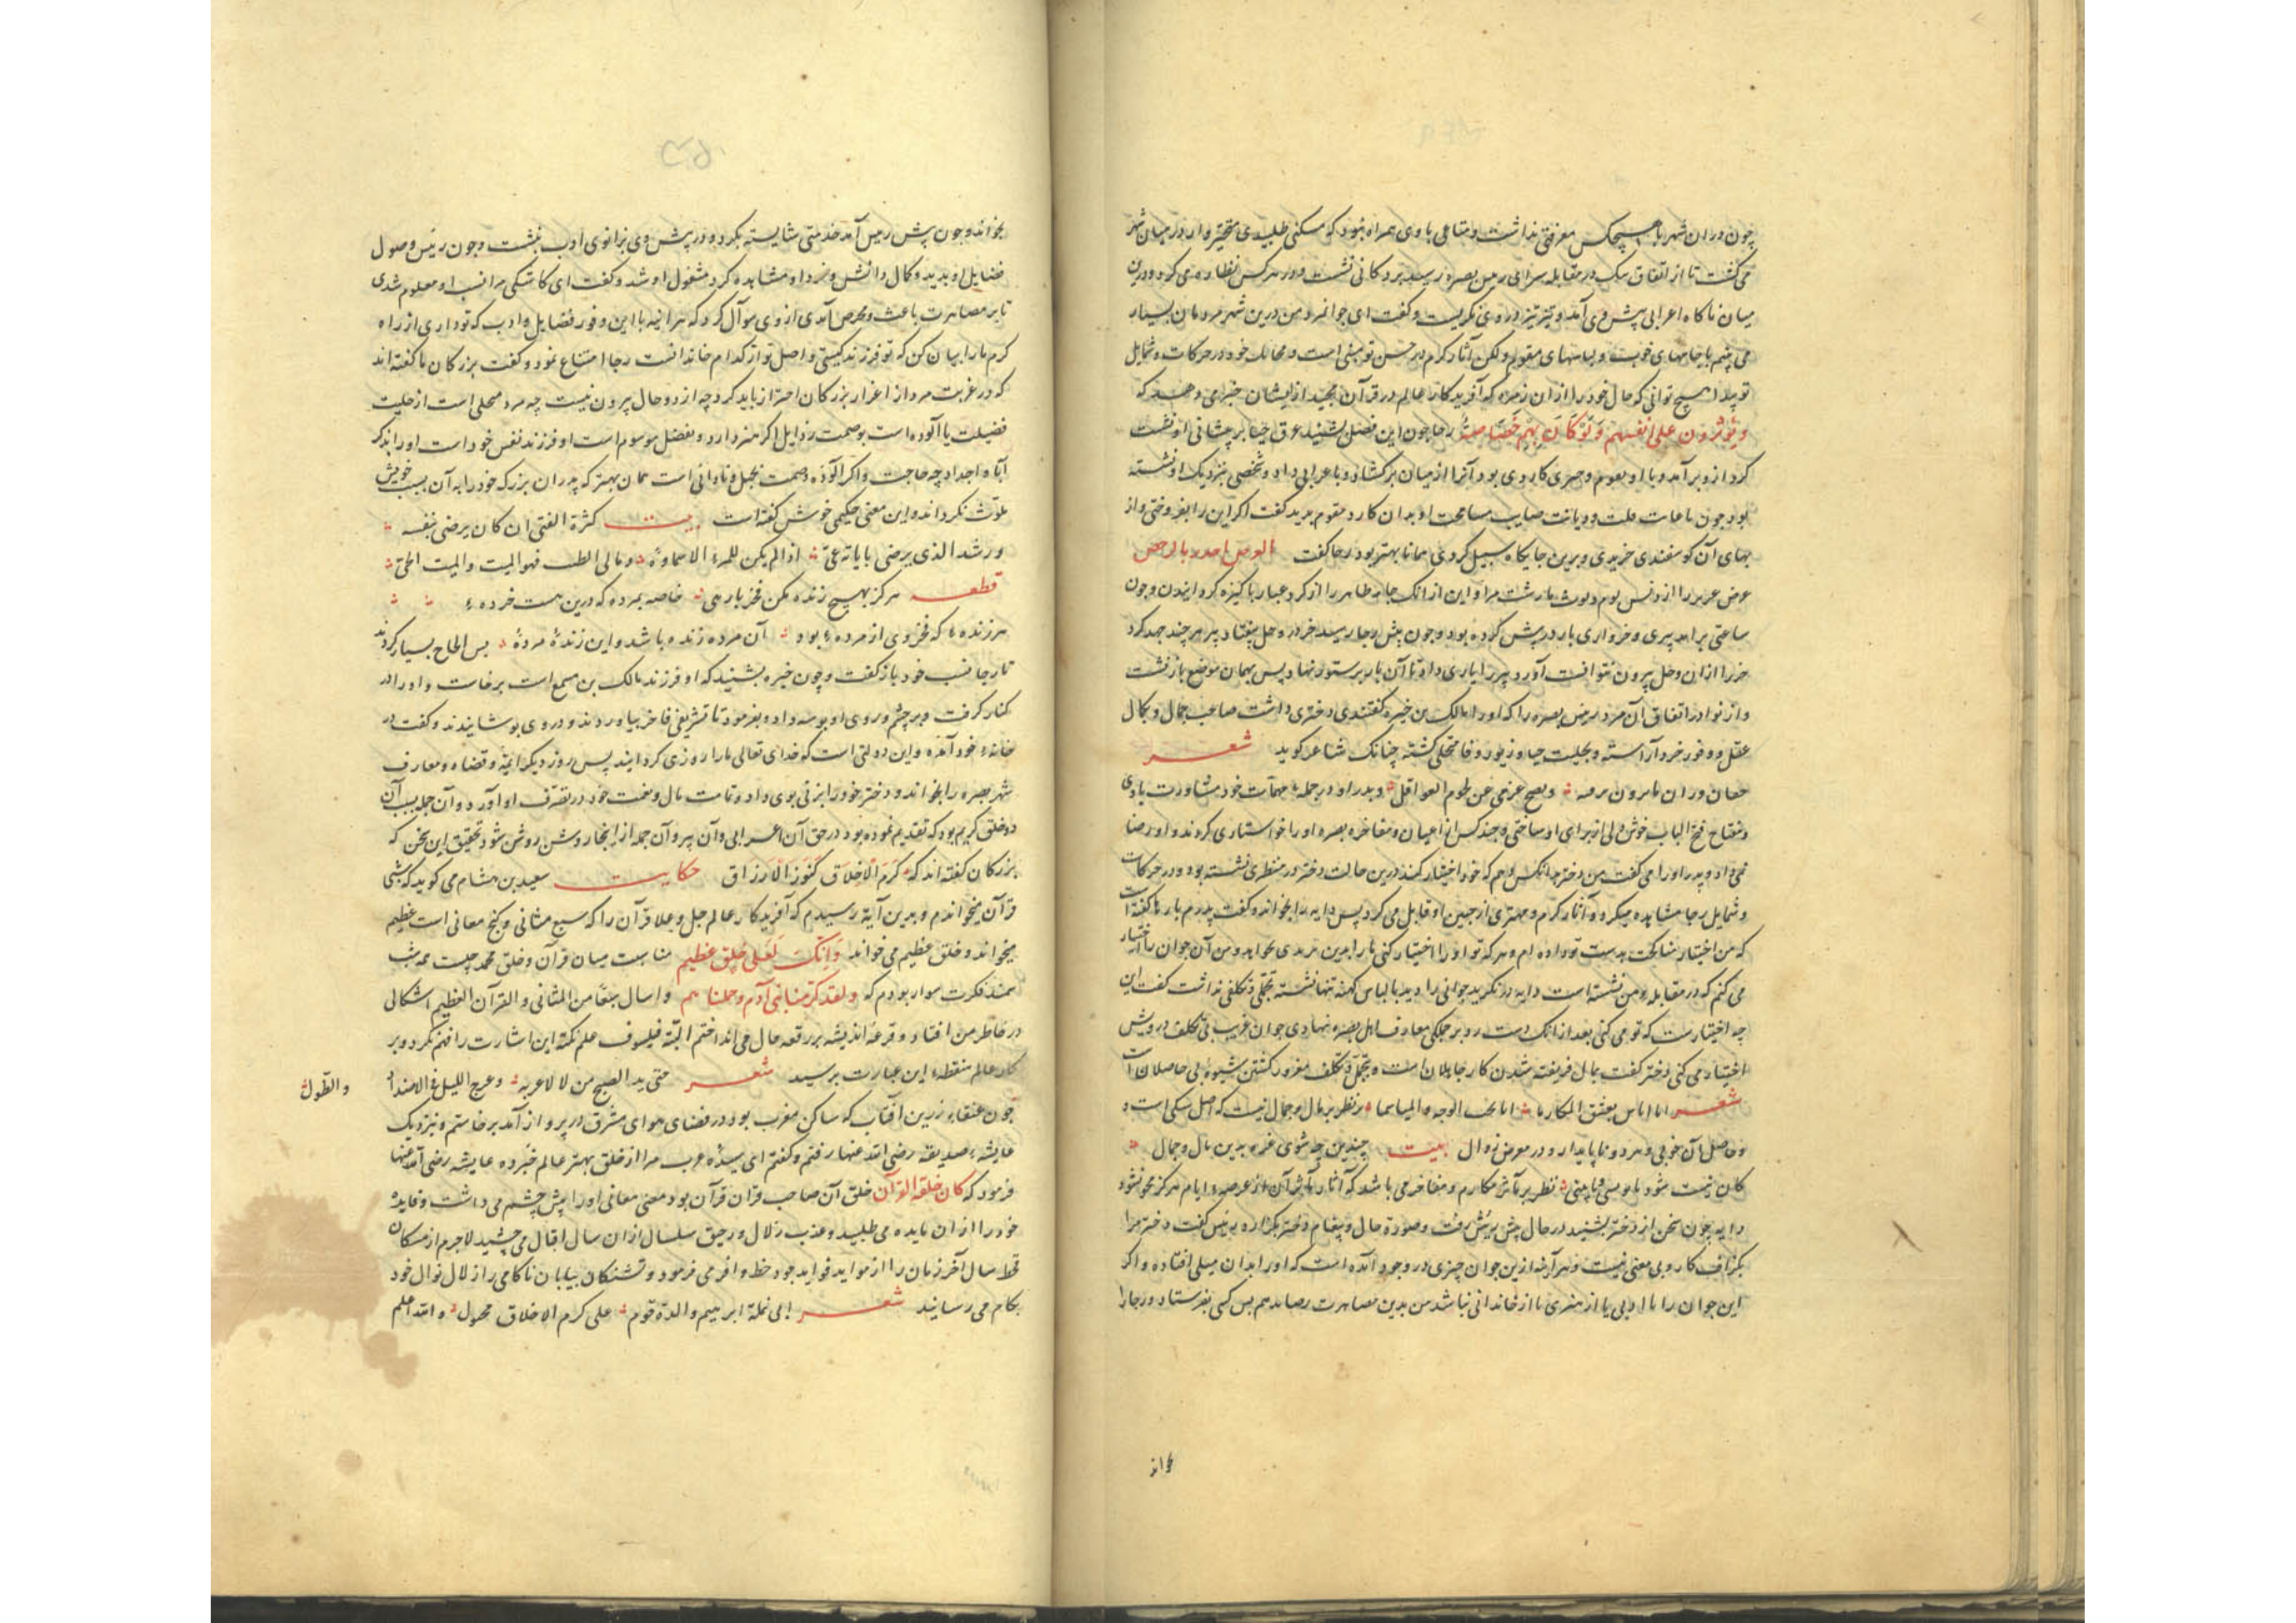 چون دران شهر با هیچکس معرفتی نداشت و متاعی با وی همراه نبود که مسکنی طلبیدی متحیروار در میان شهر
می گشت تا از اتفاق نیک در مقابله سرای رییس بصره رسید بر دکانی نشست و در هرکس نظاره می کرد و درین
میان ناکاه اعرابی پیش وی آمد و تیز تیز در وی نکریست و کفت ای جوانمرد من درین شهر مردمان بسیار
می بینم با جامهای خوب و لباسهای مقوم ولکن آثار کرم در حسن تو مبنی است و محایل خود در حرکات و شمایل
تو پیدا هیچ توانی که حال خود را از ان زمره که آفریدکار عالم در قرآن مجید از ایشان خبر می دهد که
ویؤثرون علی انفسهم ولو کان بهم خصاصة رجا چون این فصل بشنید عرق حیا بر پیشانی او نشست
کرد از و برآمد و با او بعوم وجهی کاردی بود آنرا از میان برکشاد و با عرابی داد و شخصی بنزدیک او نشسته
بود چون مساحت او بدان کارد مقوم بدید کفت اکر این را بفروختی و از
بهای آن کوسفندی خریدی و برین جایکاه سبیل کردی همانا بهتر بود رجا کفت
عرض عزیز را از دنس لوم و لوث بازشت مرا و این از انک جامه طاهر را از کرد غبار پاکیزه کرد ایدون و چون
ساعتی برآمد پیری و خرواری بار در پیش کرده بود و چون پیش رجا رسید خر در وحل بیفتاد پیر هر چند جهد کرد
خر را ازان وحل بیرون نتوانست آورد پیر را یاری داد تا آن بار بر ستور نهاد پس بهمان موضع باز نشست
و از نوادر اتفاق آن مرد رییس بصره را که او را مالک بن خیره کفتندی دختری داشت صاحب جمال و بکمال
عقل و وفور خرد آراسته و بحلیت حیا و زیور وفا متحلی کشته چنانک شاعر کوید شعر
حصان رزان و یصبح غرثی من لحوم الغوافل و پدر او در جمله مهمات خود مشاورت با وی
و مفتاح فتح الباب خوش دلی از برای او ساختی و چند کس از اعیان و مفاخره بصره او را خواستاری کردند و او رضا
نمی داد و پدر او را می کفت من دختر بدانکس دهم که خود اختیار کند درین حالت دختر در منظری نشسته بود و در حرکات
و شمایل رجا مشاهده میکرد و آثار کرم و مهتری از جبین او قابل می کرد پس دایه را بخواند و کفت پدرم بارها کفته است
که من اختیار مناکحت بدست تو داده ام و هر که تو او را اختیار کنی من آن جوان را اختیار
می کنم که در مقابله من نشسته است دایه در نکرید جوانی را دید با لباس کهنه تنها نشسته تجملی و تکلفی نداشت کفت این
چه اختیارست که تو می کنی بعد از انک دست رد بر جملکی معارف اهل بصره نهادی جوان غریب بی تکلف درویش
اختیار می کنی دختر کفت بمال فریفته شدن کار جاهلان است و بتجمل و تکلف مغرور کشتن شیوه بی حاصلان است
شعر انا اناس بعشق المکارما انا نحب الوجه والمیاسما نظر بر مال و جمال نیست که اصل نیکی است و
و حاصل آن خوبی و هر دو ناپایدار و در معرض زوال بیت چندین چه شوی غره بدین مال و جمال
کان نیست شود تا بوسی و تا بینی نظر بر مآثر مکارم و مفاخر می باشد که آثار و مآثر آن از عرصه ایام هرکز محو نشود
دایه چون سخن از دختر بشنید در حال پیش رییس رفت و صورة حال و پیغام دختر بکزارد رییس کفت دختر مرا
بکزاف کار و بی معنی نیست و هر آینه ازین جوان چیزی در وجود آمده است که او را بدان میلی افتاده و اکر
این جوان را مال و بی یا از هنری یا از خاندانی نباشد من بدین مصاهرت رضا دهم پس کسی بفرستاد و رجا را
بخواند
بخواند و چون پیش رییس آمد خدمتی شایسته بکرد و در پیش وی بزانوی ادب بنشست و چون رییس وصول
فضایل او بدید و کمال دانش و خرد او مشاهده کرد مشغول او شد و کفت ای کاشکی مرا نسب او معلوم شدی
تا بر مصاهرت باعث و محرص آمدی از وی سوآل کرد که هر آینه با این وفور فضایل و ادب که تو داری از راه
کرم ما را بیان کن که تو فرزند کیستی و اصل تو از کدام خاندانست رجا امتناع نمود و کفت بزرکان ما کفته اند
که در غربت مرد از اغرار بزرکان احتراز باید کرد چه از دو حال بیرون نیست چه مرد محلی است از حلیت
فضیلت یا آلوده است بوصمت رذایل اکر هنر دارد و بفضل موسوم است او فرزند نفس خود است او را بذکر
آبا و اجداد چه حاجت و اکر آلوده وصمت بجهل و نادانی است همان بهتر که پدران بزرکه خود را به آن سبب خویش
ملوث نکرداند و این معنی حکیمی خوش کفته است بیت کثرة الفتی ان کان یرضی بنفسه
و رشد الذی یرضی بآبائه غیّ اذا لم یکن للمرء الا سماوة
قطعه هرکز بهیچ زنده مکن فخر بار می خاصه بمرده که درین هست خرده
هر زنده که فخر وی از مرده بود آن مرده زنده باشد و این زنده مرده پس الحاح بسیار کردند
تا رجا نسب خود باز کفت و چون خیره بشنید که او فرزند مالک بن مسمع است برخاست و او را در
کنار کرفت و بر چشم و روی او بوسه داد و بفرمود تا تشریفی فاخر بیاوردند و در وی پوشانیدند و کفت در
خانه خود آمده و این دولتی است که خدای تعالی ما را روزی کردانید پس روز دیکر ایمه و قضاه و معارف
شهر بصره را بخواند و دختر خود را بزنی بوی داد و تمامت مال و نعمت خود در تصرف او آورد و آن جمله بسبب آن
دو خلق کریم بود که تقدیم نموده بود در حق آن اعرابی و آن پیر و آن جمله از اینجا روشن شود تحقیق این سخن که
بزرکان کفته اند که کرم الاخلاق کنوز الارزاق حکایت سعید بن هشام می کوید که شبی
قرآن میخواندم و بدین آیة رسیدم که آفریدکار عالم جل و علا قرآن را که سبع مثانی و کنج معانی است عظیم
میخواند و خلق عظیم می خواند وانک لعلی خلق عظیم مناسبت میان قرآن و خلق محمد چیست همه شب
سمند فکرت سوار بودم که ولقد کرمنا بنی آدم وحملناهم سبعا من المثانی والقرآن العظیم اشکالی
در خاطر من افتاد و قرعه اندیشه بر رقعه حال می راند اختم البته فیلسوف علم نکته این اشارت را فهم نکرد و بر
کار عالم منقطه این عبارت برسید شعر متی یبد الصبح من لا لا غربه وعرج اللیل فی الامتداد
والطول
چون عنقاء زرین آفتاب که ساکن مغرب بود در فضای هوای مشرق در پرواز آمد برخاستم و بنزدیک
عایشه صدیقه رضی الله عنها رفتم و کفتم ای سیده عرب مرا از خلق بهتر عالم خبر ده عایشه رضی الله عنها
فرمود که کان خلقه القرآن خلق آن صاحب قران قرآن بود معنی معانی او را پیش چشم می داشت و فایده
خود را از ان مایده می طلبید و عذب زلال و رحیق سلسال از ان سال اقبال می چشید لاجرم از مسکان
قحط سال آخر زمان را از مواید فواید جود حظ وافر می فرمود و تشنکان بیابان ناکامی را زلال نوال خود
بکام می رسانید شعر ابی نملة ابرهیم والدة قوم علی کرم الاخلاق محمول والله اعلم